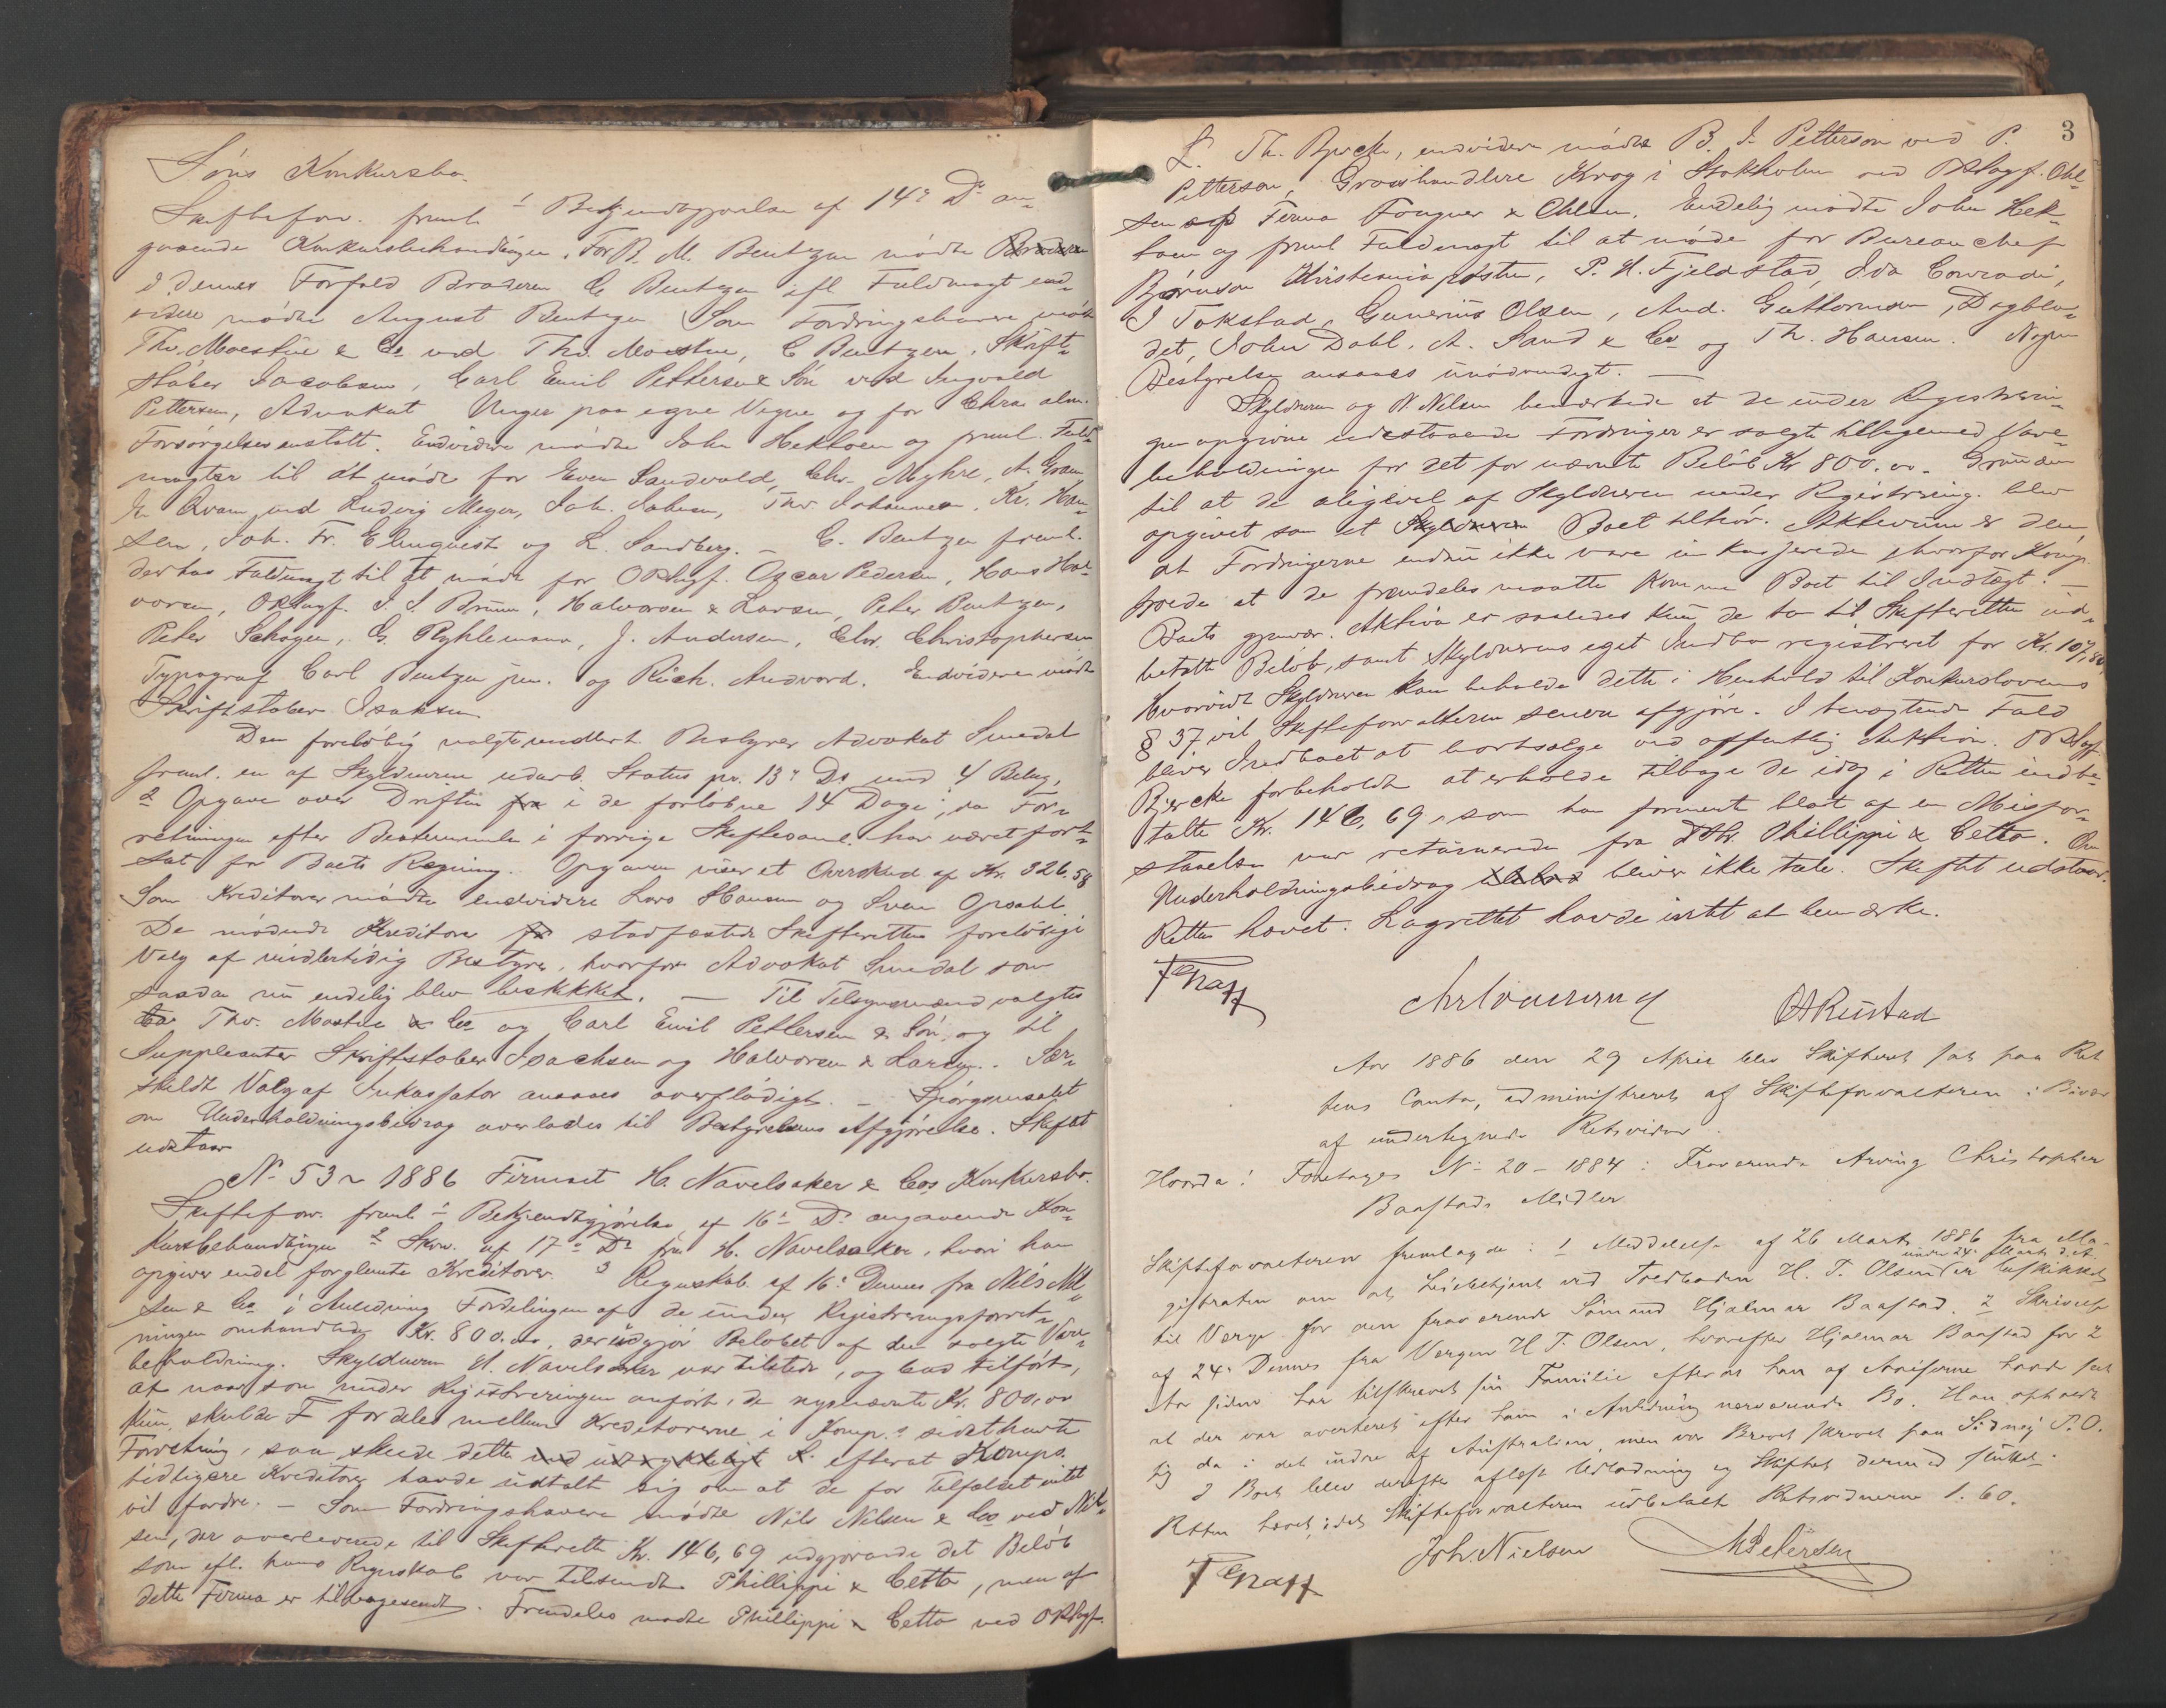 Söns Konkursbo.
Skiftefov. freml 1 Bekjendtgjörelse af 14de Ds an-
gaaende Konkursbehandlingen. For B. M. Bentzen mödte Broderen
i dennes Forfald Broderen C. Bentzen ifl Fuldmagt end-
videre mödte August Bentzen. Som Fordringshavere mödte
Thv. Moestue & Co ved Thv. Moestue, C Bentzen, Skrift-
støber Jacobsen, Carl Emil Pettersen & Sön ved Ingvald
Pettersen, Advokat Unger paa egne Vegne og for Chra alm.
Forsörgelsesanstalt. Endvidere mödte John Hekkoen og freml. Fuld-
magter til at möde for Even Sandvold, Chr. Myhre, A. Gram
Qvam ved Ludvig Meyer, Joh. Johnsen, Thv Johannesen, Kr. Han-
sen, Joh. Fr. Elmqvest og L. Sandberg. – C. Bentzen freml.
derhos Fuldmagt til at möde for ORSagf. Oscar Pedersen, Hans Hal-
vorsen, ORSagf. J. J. Bruun, Halvorsen & Larsen, Peter Bentzen,
Peter Schøyen, G. Ryhlemann, J. Andersen, Chr. Christophersen
Typograf Carl Bentzen jun. og Rich. Andvord. Endvidere mödte
Skriftstøber Isaksen
Den forelöbig valgte midlert. Bestyrer Advokat Smedal
freml. en af Skyldneren udarb. Status pr. 13de Ds med 4 Belag,
2 Opgave over Driften fra i de forlöbne 14 Dage, da For-
retningen efter Bestemmelse i forrige Skiftesaml. har været fort-
sat for Boets Regning. Opgaven viser et Overskud af Kr. 326.58
Som Kreditorer mödte endvidere Lars Hansen og Sven Opsahl.
De mödende Kreditorer stadfæstede Skifterettens forelöbige
Valg af midlertidig Bestyrer, hvorfor Advokat Smedal som
saadan nu endelig blev beskikket. – Til Tilsynsmænd valgtes
Thv. Moestue & Co og Carl Emil Pettersen & Sön, og til
Suppleanter Skriftstøber Isachsen og Halvorsen & Larsen. Sær-
skildt Valg af Inkassator ansaaes overflödigt. – Spörgsmaalet
om Underholdningsbidrag overlodes til Bestyrelsens Afgjörelse. Skiftet
udstaar
No 53 – 1886 Firmaet H. Navelsaker & Cos Konkursbo.
Skiftefov. freml 1 Bekjendtgjörelse af 16de Ds angaaende Kon-
kursbehandlingen 2 Skr. af 17de Ds fra H. Navelsaker, hvori han
opgiver endel forglemte Kreditorer. 3 Regnskab af 16de Dennes fra Nils Nil-
sen & Co i Anledning Fordelingen af de under Registreringsforret-
ningen omhandlede Kr. 800.00, der udgjör Belöbet af den solgte Vare-
beholdning. Skyldneren H. Navelsaker var tilstede, og bad tilfört,
at naar som under Registreringen anfört, de nysnævnte Kr. 800,00
kun skulde fordeles mellem Kreditorerne i Komp.s sidsthavte
Forretning, saa skede dette efterat Komps.
tidligere Kreditorer havde udtalt sig om at de for Tilfældet intet
vil fordre. – Som Fordringshavere mödte Nils Nilsen & Co ved Nil-
sen, der overleverede til Skifteretten Kr. 146,69 udgjörende det Belöb
som ifl. hans Regnskab var tilsendt Phillippi & Cetto, men af
dette Firma er tilbagesendt. Fremdeles mødte Phillippi & Cetto ved ORSagf.
3
L. Th. Bjercke, endvidere mødte B. J. Petterson ved P.
Petterson, Grosshandlere Krog i Stokholm ved ORSagf. Ohl-
sen af Firma Fougner & Ohlsen. Endelig mødte John Hek-
koen og freml Fuldmagt til at møde for Bureauchef
Björnson Kristianiaposten, P. H. Fjeldstad, Ida Conradi,
J Tokstad, Gunerius Olsen, And. Guttormsen, Dagbla-
det, John Dahl, A. Sand & Co og Th. Hansen. Nogen
Bestyrelse ansaaes unödvendigt. –
Skyldneren og N. Nilsen bemærkede at de under Registrerin-
gen opgivne udestaaende Fordringer er solgte tilligemed Vare-
beholdningen for det for nævnte Belöb Kr 800.00. Grunden
til at de alligevel af Skyldneren under Registrering. blev
opgivet som et Skyldneren Boet tilhör. Aktivum er den
at Fordringerne endnu ikke vare inkasserede hvorfor Komp.
troede at de fremdeles maatte komme Boet til Indtægt. –
Boets Aktiva er saaledes kun de to til Skifteretten ind-
betalte Belöb, samt Skyldnerens eget Indbo registreret for Kr. 107,80
Hvorvidt Skyldneren kan beholde dette i Henhold til Konkurslovens
§ 37 vil Skifteforvalteren senere afgjöre. I benegtende Fald
bliver Indboet at bortsælge ved offentlig Auktion. ORSagf
Bjercke forbeholdt at erholde tilbage de idag i Retten indbe-
talte Kr. 146,69, som han formente blot af en Misfor-
staaelse var returnerede fra DHr. Phillippi & Cetto. Om
Underholdningsbidrag bliver ikke Tale. Skiftet udstaar.
Retten hævet. Lagrettet havde intet at bemærke.
OA Rustad
Aar 1886 den 29 April blev Skifteret sat paa Ret
tens Contor, administreret af Skifteforvalteren i Bivær
af undertegnede Retsvidner.
Hvorda: Foretoges No 20 – 1884: Fraværende Arving Christopher
Baastads Midler
Skifteforvalteren fremlagde: 1 Meddelelse af 26 Marts 1886 fra Ma-
gistraten om at Leiebetjent ved Toldboden H. T. Olsen under 24 Marts d.A. er beskikket
til Verge for den fraværende Sömand Hjalmar Baastad. 2 Skrivelse
af 24de Dennes fra Vergen H. T. Olsen, hvorefter Hjalmar Baastad for 2
Aar siden har tilskrevet sin Familie efterat han af Aviserne havde set
at der var averteret efter ham i Anledning nærværende Bo. Han opholdt
sig da i det indre af Australien, men var Brevet skrevet paa Sidney P.O.
I Boet blev derefter aflæst Udlodning og Skiftet dermed sluttet.
Retten hævet, idet Skifteforvalteren udbetalte Retsvidnerne 1.60.
Joh. Nielsen
M Petersen